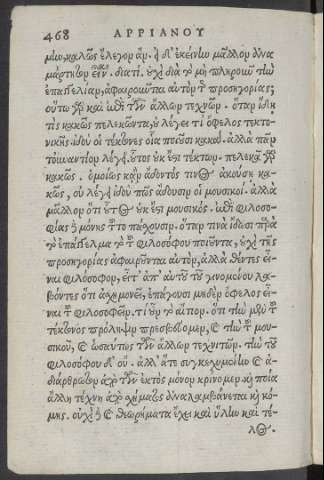 468 ΑΡΡΙΑΝΟΥ
μιν, καλῶς ἔλεγον ἄν. εἰ δ' ἐκείνην μᾶλλον
διατί. οὐχὶ διὰ τὸ μὴ πληροῦν τὴν
ἐπαγγελίαν, ἀφαιροῦμεθα αὐτὸν τῆς προσηγορίας;
οὕτω γὰρ καὶ ἐπὶ τῶν ἄλλων τεχνῶν. ὅταν ἴδῃ
τὶς κακῶς πελεκῶντα, οὐ λέγει τί ὄφελος τεκτο-
νικῆς ἰδοὺ οἱ τέκτονες οἷα ποιοῦσι κακά. ἀλλὰ πᾶν
τοὐναντίον λέγει, οὗτος οὐκ ἔστι τέκτων. πελεκᾷ γὰρ
κακῶς. ὁμοίως κἂν ᾄδοντός τινος ἀκούσῃ κα-
κῶς, οὐ λέγει ἰδοὺ πῶς ᾄδουσιν οἱ μουσικοί. ἀλλὰ
μᾶλλον ὅτι οὗτος οὐκ ἔστι μουσικός. ἐπὶ φιλοσο-
φίας δὲ μόνης τοῦτο πάχουσιν. ὅταν τινὰ ἴδωσι παρὰ
τὸ ἐπάγγελμα τὸ τοῦ φιλοσόφου ποιοῦντα, οὐχὶ τῆς
προσηγορίας ἀφαιροῦνται αὐτὸν, ἀλλὰ θέντες εἶ-
ναι φιλόσοφον, εἶτ' ἀπ' αὐτοῦ τοῦ γινομένου λα-
βόντες ὅτι ἀσχημονεῖ, ἐπάγουσι μηδὲν ὄφελος εἶ-
ναι τοῦ φιλοσοφεῖν. τί οὖν τὸ αἴτιον. ὅτι τὴν μὲν τοῦ
τέκτονος πρόληψιν πρεσβεύομεν, καὶ τὴν τοῦ μου-
σικοῦ, καὶ ὡσαύτως τῶν ἄλλων τεχνιτῶν. τὴν τοῦ
φιλοσόφου δ' οὔ. ἀλλ' ἅτε συγκεχυμένην καὶ ἀ-
διάρθρωτον ἀπὸ τῶν ἐκτὸς μόνον κρίνομεν καὶ ποία
ἄλλη τέχνη ἀπὸ σχήματος ἀναλαμβάνεται καὶ κό-
μης. οὐχὶ δὲ καὶ θεωρήματα ἔχει καὶ ὕλην καὶ τέ-
λος.